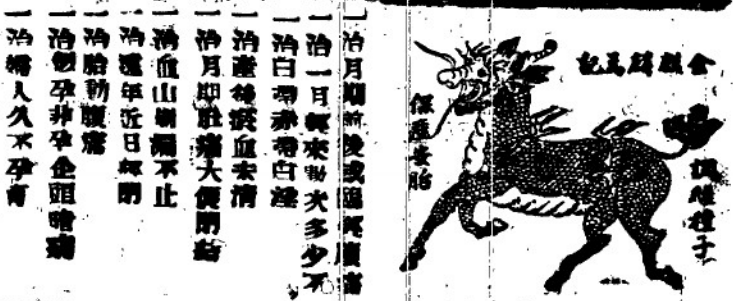 金麒麟為記
調經種子
保產安胎
一治月期前後或臨經腹痛
一治一月經來數次多少不
一治白帶赤帶白淫
一治產後淤血未清
一治月期肚痛大便閉結
一治血山崩漏不止
一治遠年近日經閉
一治胎動腹痛
一治似孕非孕企頭暗病
一治婦人久不孕育